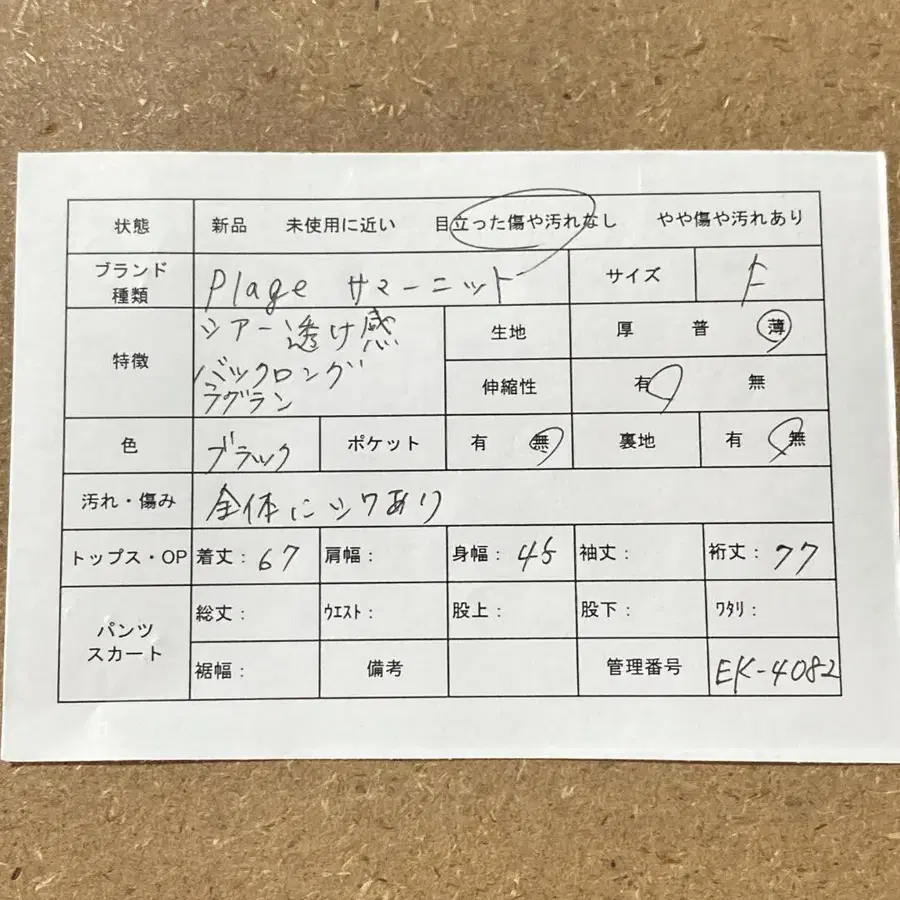 状態 新品 未使用に近い 目立った傷や汚れなし やや傷や汚れあり
ブランド
種類
Plage サマーニット
サイズ F
特徴
シアー透け感
バックロング
ラグラン
生地 厚 普 薄
伸縮性 有 無
色 ブラック ポケット 有 無 裏地 有 無
汚れ・傷み 全体にシワあり
トップス・OP 着丈：67 肩幅： 身幅：45 袖丈： 裄丈：77
パンツ
スカート
総丈： ウエスト： 股上： 股下： ワタリ：
裾幅： 備考 管理番号 EK-4082